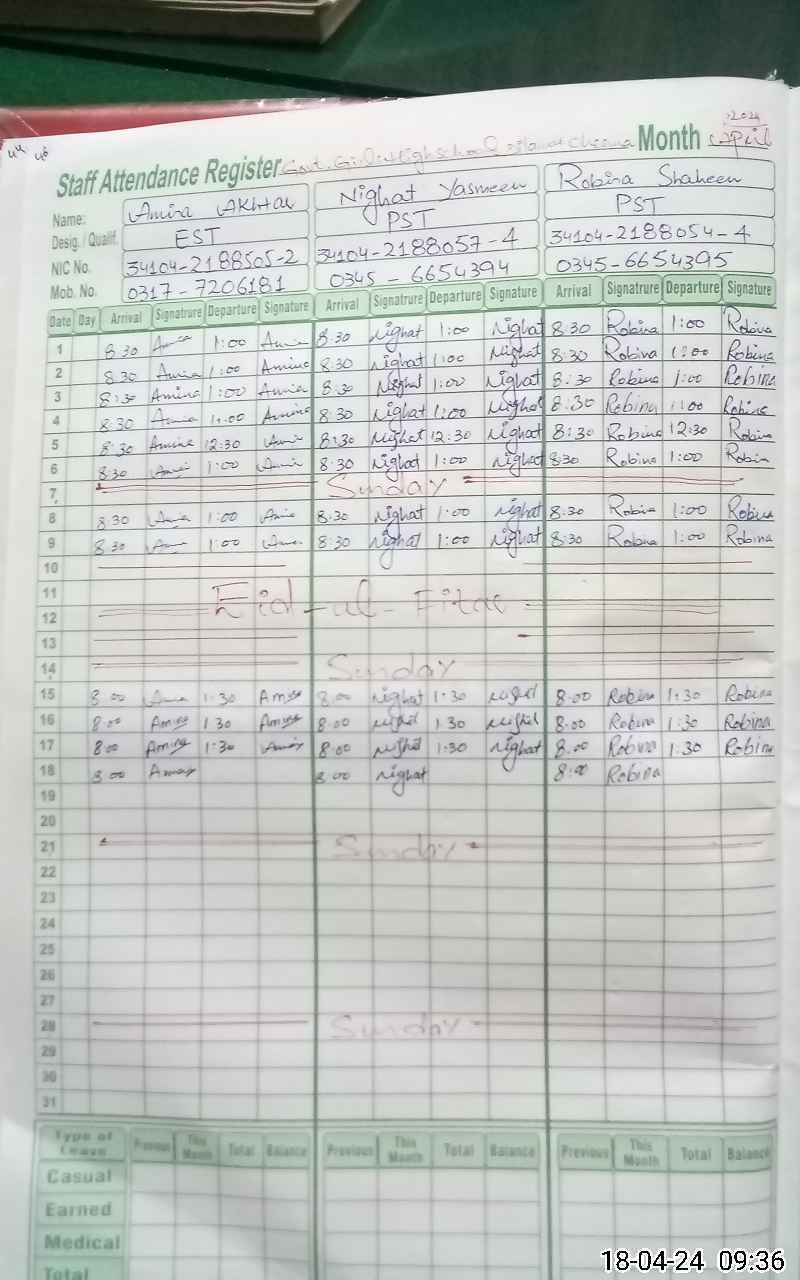 2024
Staff Attendance Register Govt. Girls High School Cheema Month April
Name: Amina Akhtar Nighat Yasmeen Robina Shaheen
Desig. / Qualif. EST PST PST
NIC No. 34104-2188505-2 34104-2188057-4 34104-2188054-4
Mob. No. 0317-7206181 0345-6654394 0345-6654395
Date Day Arrival Signatrure Departure Signature Arrival Signatrure Departure Signature Arrival Signatrure Departure Signature
1 8:30 Amina 1:00 Amina 8:30 Nighat 1:00 Nighat 8:30 Robina 1:00 Robina
2 8:30 Amina 1:00 Amina 8:30 Nighat 1:00 Nighat 8:30 Robina 1:00 Robina
3 8:30 Amina 1:00 Amina 8:30 Nighat 1:00 Nighat 8:30 Robina 1:00 Robina
4 8:30 Amina 1:00 Amina 8:30 Nighat 1:00 Nighat 8:30 Robina 1:00 Robina
5 8:30 Amina 12:30 Amina 8:30 Nighat 12:30 Nighat 8:30 Robina 12:30 Robina
6 8:30 Amina 1:00 Amina 8:30 Nighat 1:00 Nighat 8:30 Robina 1:00 Robina
7 Sunday
8 8:30 Amina 1:00 Amina 8:30 Nighat 1:00 Nighat 8:30 Robina 1:00 Robina
9 8:30 Amina 1:00 Amina 8:30 Nighat 1:00 Nighat 8:30 Robina 1:00 Robina
10
11 Eid-ul-Fitar
12
13
14 Sunday
15 8:00 Amina 1:30 Amina 8:00 Nighat 1:30 Nighat 8:00 Robina 1:30 Robina
16 8:00 Amina 1:30 Amina 8:00 Nighat 1:30 Nighat 8:00 Robina 1:30 Robina
17 8:00 Amina 1:30 Amina 8:00 Nighat 1:30 Nighat 8:00 Robina 1:30 Robina
18 8:00 Amina 8:00 Nighat 8:00 Robina
19
20
21 Sunday
22
23
24
25
26
27
28 Sunday
29
30
31
Type of Leave Previous This Month Total Balance Previous This Month Total Balance Previous This Month Total Balance
Casual
Earned
Medical
Total
18-04-24 09:36